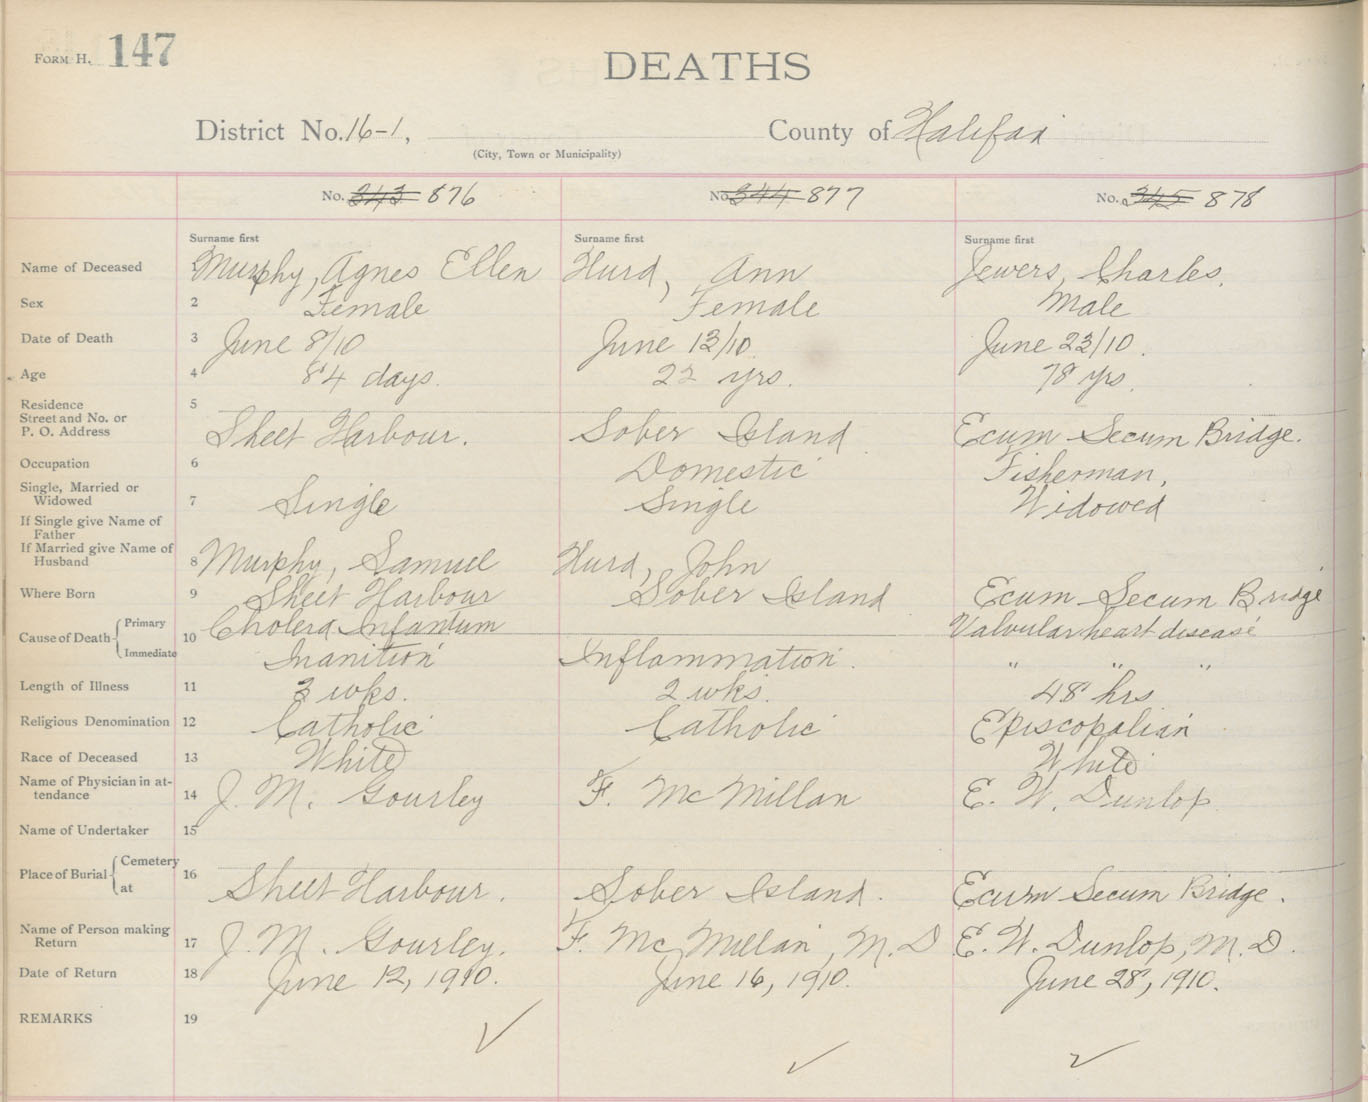 FORM H. 147
DEATHS
District No. 16-1, County of Halifax
(City, Town or Municipality)
No. 343 876 No. 344 877 No. 345 878
Surname first Surname first Surname first
Name of Deceased 1 Murphy, Agnes Ellen Hurd, Ann Jewers, Charles.
Sex 2 Female Female Male
Date of Death 3 June 8/10 June 13/10 June 23/10.
Age 4 84 days. 22 yrs. 78 yrs.
Residence 5
Street and No. or
P. O. Address Sheet Harbour. Sober Island Ecum Secum Bridge.
Occupation 6 Domestic Fisherman,
Single, Married or
Widowed 7 Single Single Widowed
If Single give Name of
Father
If Married give Name of
Husband 8 Murphy, Samuel Hurd, John
Where Born 9 Sheet Harbour Sober Island Ecum Secum Bridge
Cause of Death Primary 10 Cholera Infantum Valvular heart disease
Immediate Inanition Inflammation. " " "
Length of Illness 11 3 wks. 2 wks. 48 hrs
Religious Denomination 12 Catholic Catholic Episcopalian
Race of Deceased 13 White White
Name of Physician in at-
tendance 14 J. M. Gourley F. McMillan E. W. Dunlop.
Name of Undertaker 15
Place of Burial Cemetery 16
at Sheet Harbour. Sober Island. Ecum Secum Bridge.
Name of Person making
Return 17 J. M. Gourley. F. McMillan, M.D E. W. Dunlop, M.D.
Date of Return 18 June 12, 1910. June 16, 1910. June 28, 1910.
REMARKS 19